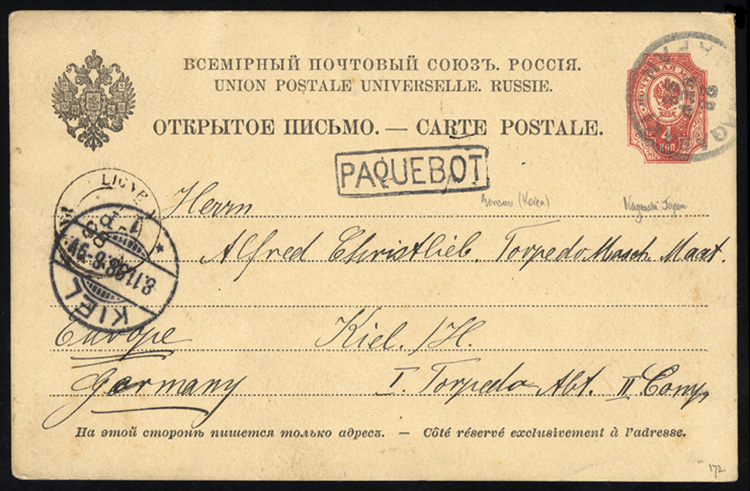 ВСЕМІРНЫЙ ПОЧТОВЫЙ СОЮЗЪ. РОССІЯ.
UNION POSTALE UNIVERSELLE. RUSSIE.
ОТКРЫТОЕ ПИСЬМО. — CARTE POSTALE.
4
КОП
PAQUEBOT
(Korea)
Nagasaki Japan
Herrn
Alfred Christlieb. Torpedo Masch. Maat.
KIEL
Europe
Kiel./H.
Germany
I. Torpedo Abt. II Comp.
На этой сторонѣ пишется только адресъ. — Côté réservé exclusivement à l'adresse.
172